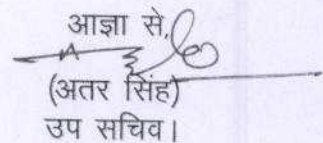 आज्ञा से,
(अतर सिंह)
उप सचिव।